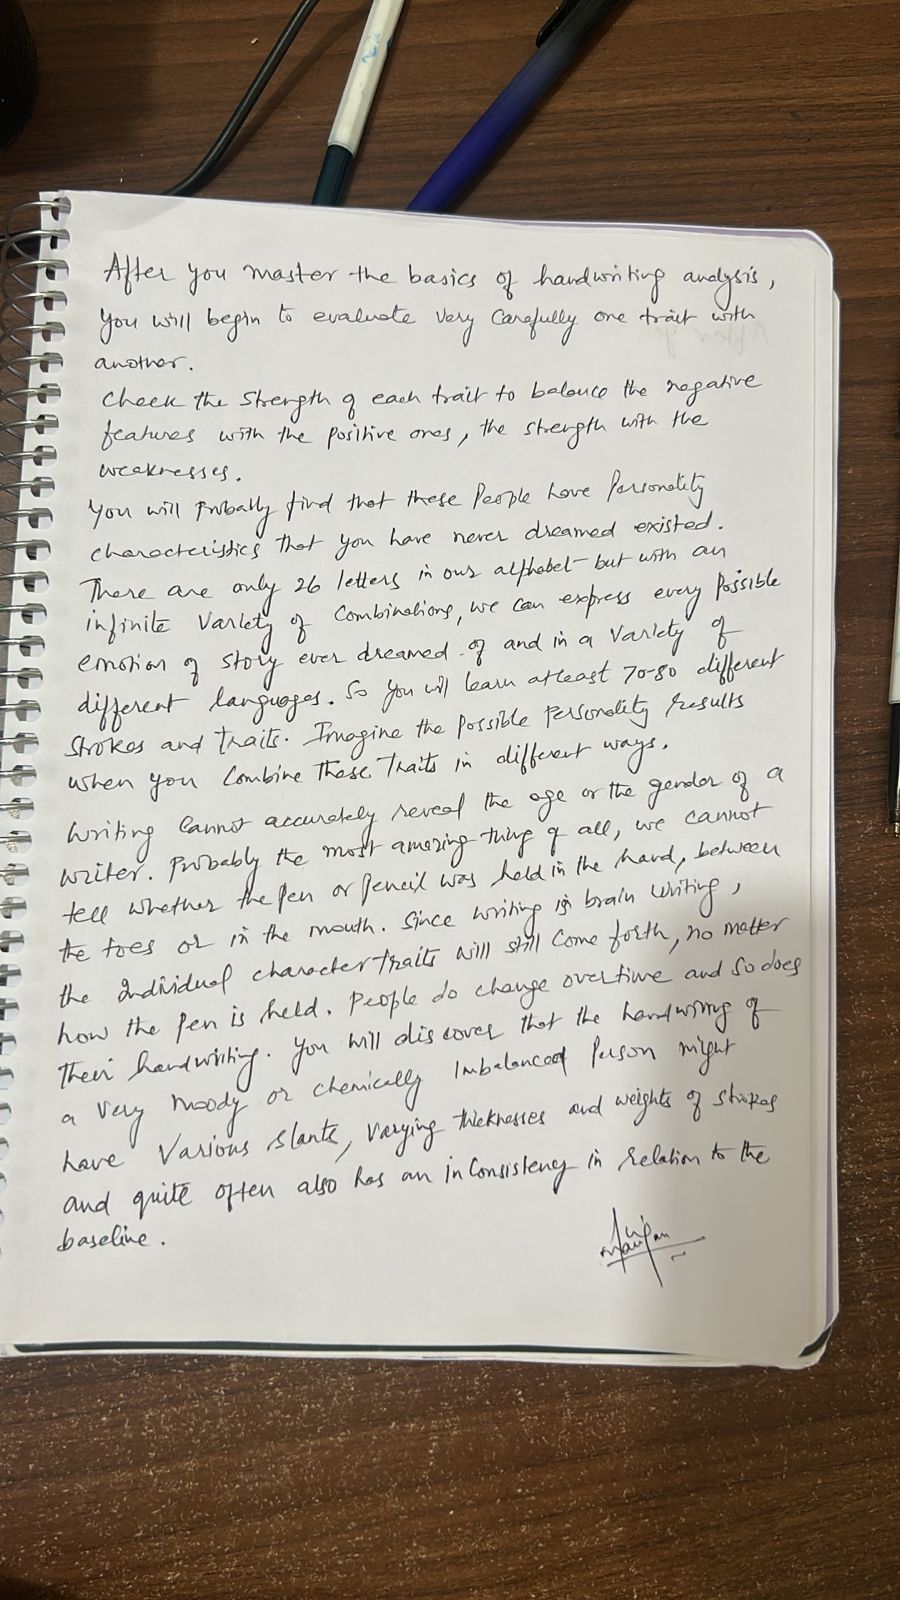 After you master the basics of handwriting analysis,
you will begin to evaluate very carefully one trait with
another.
Check the strength of each trait to balance the negative
features with the positive ones, the strength with the
weaknesses.
You will probally find that these people have personality
characteristics that you have never dreamed existed.
There are only 26 letters in our alphabet but with an
infinite variety of combinations, we can express every possible
emotion of story ever dreamed of and in a variety of
different languages. So you will learn atleast 70-80 different
strokes and traits. Imagine the possible personality results
when you combine these traits in different ways.
Writing cannot accurately reveal the age or the gender of a
writer. Probably the most amazing thing of all, we cannot
tell whether the pen or pencil was held in the hand, between
the toes or in the mouth. Since writing is brain writing,
the individual character traits will still come forth, no matter
how the pen is held. People do change overtime and so does
their handwriting. You will discover that the handwring of
a very moody or chemically imbalanced person might
have various slants, varying thicknesses and weights of strokes
and quite often also has an inconsistency in relation to the
baseline.